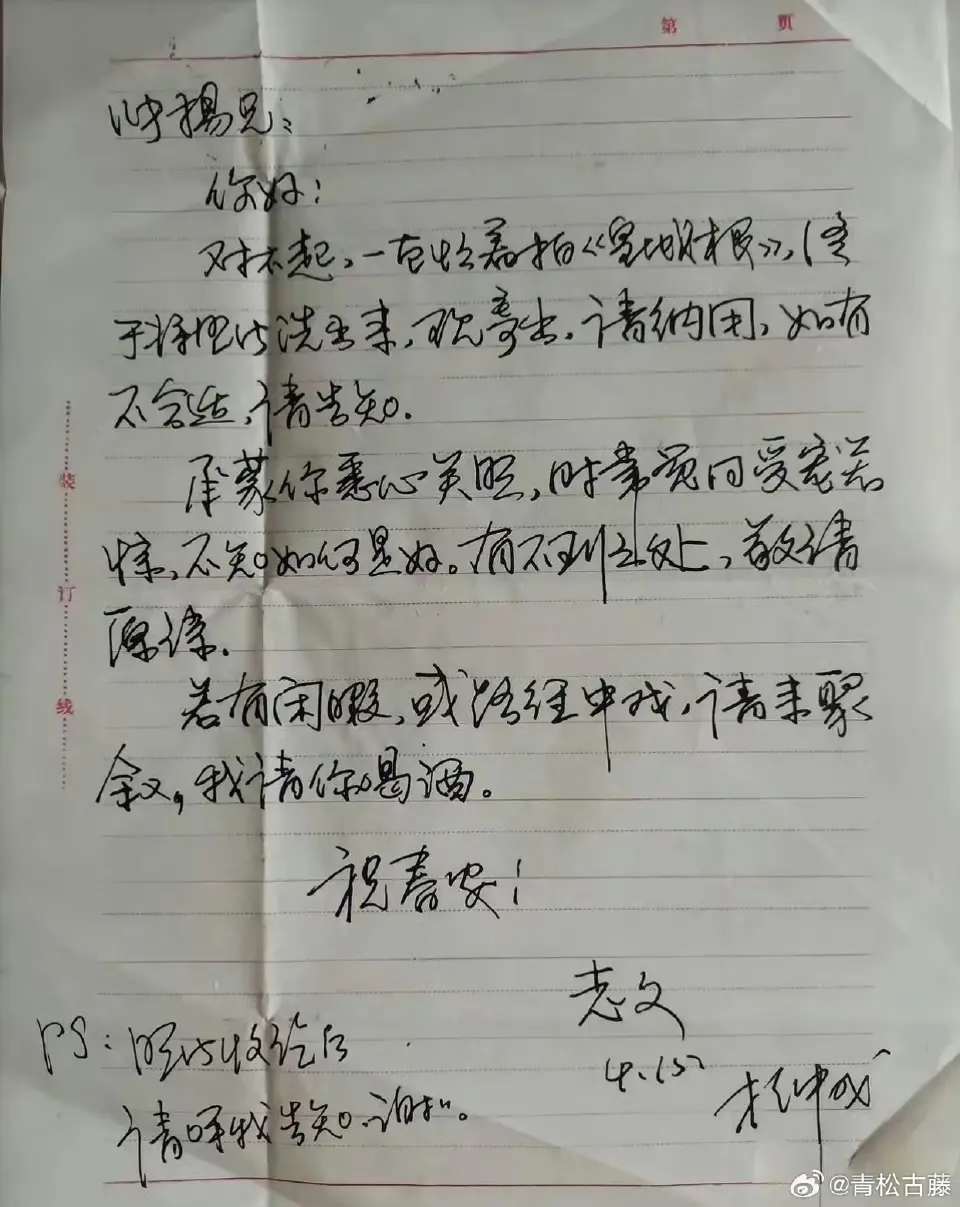 第 页
晔杨兄：
你好！
对不起，一直忙着拍《皇城根》，
于将照片洗出来，现寄出，请纳用，如有
不合适，请告知。
承蒙你悉心关照，时常 受宠若
惊，不知如何是好。有不到之处，敬请
原谅。
若有闲暇，或路经中戏，请来聚
叙，我请你喝酒。
祝春安！
志文
4.15
PS：照片收讫后
请呼我告知。谢谢。
于中戏
装订线
@青松古藤